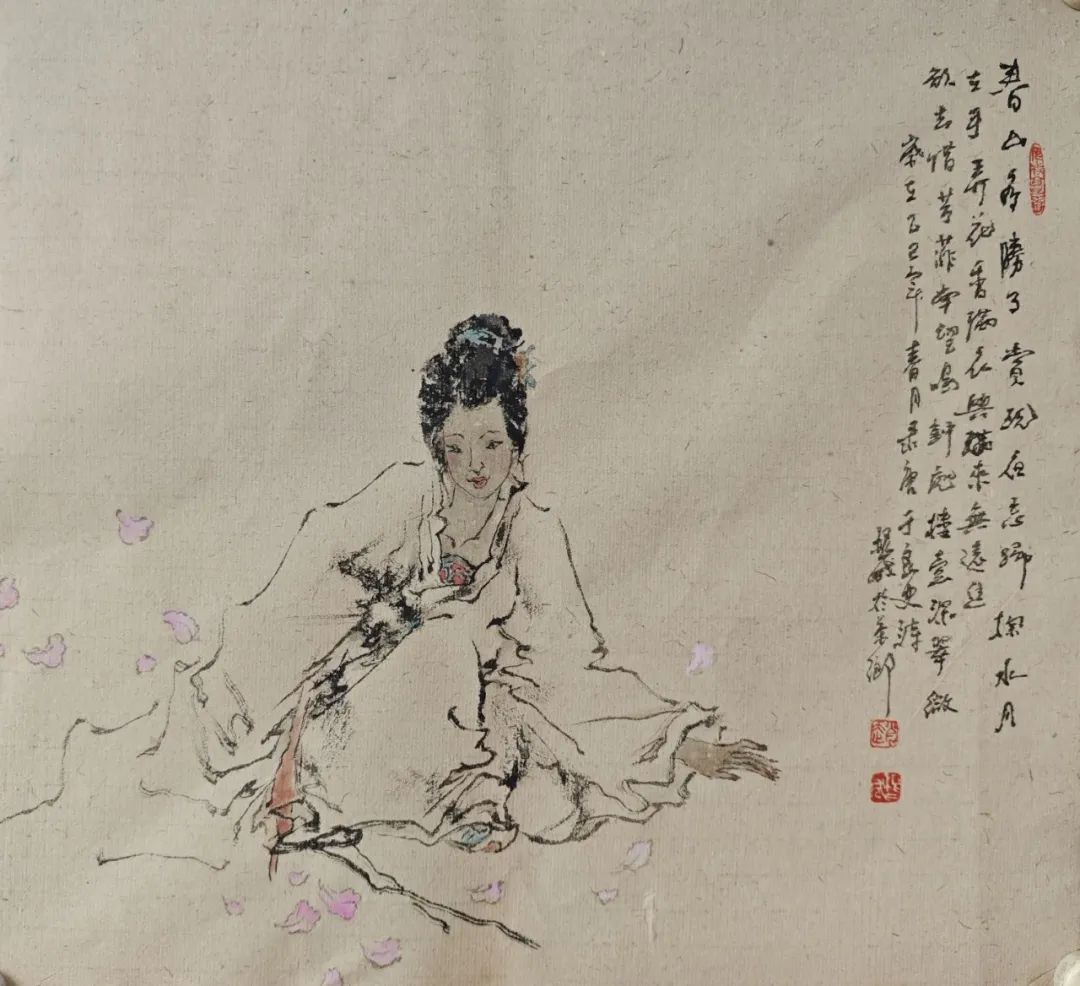 春山多勝事賞玩夜忘歸掬水月
在手弄花香滿衣興滿來無遠近
欲去惜芳菲南望鳴鈡處樓臺深翠微
歲在乙巳年春月录唐于良史詩
於茶鄉